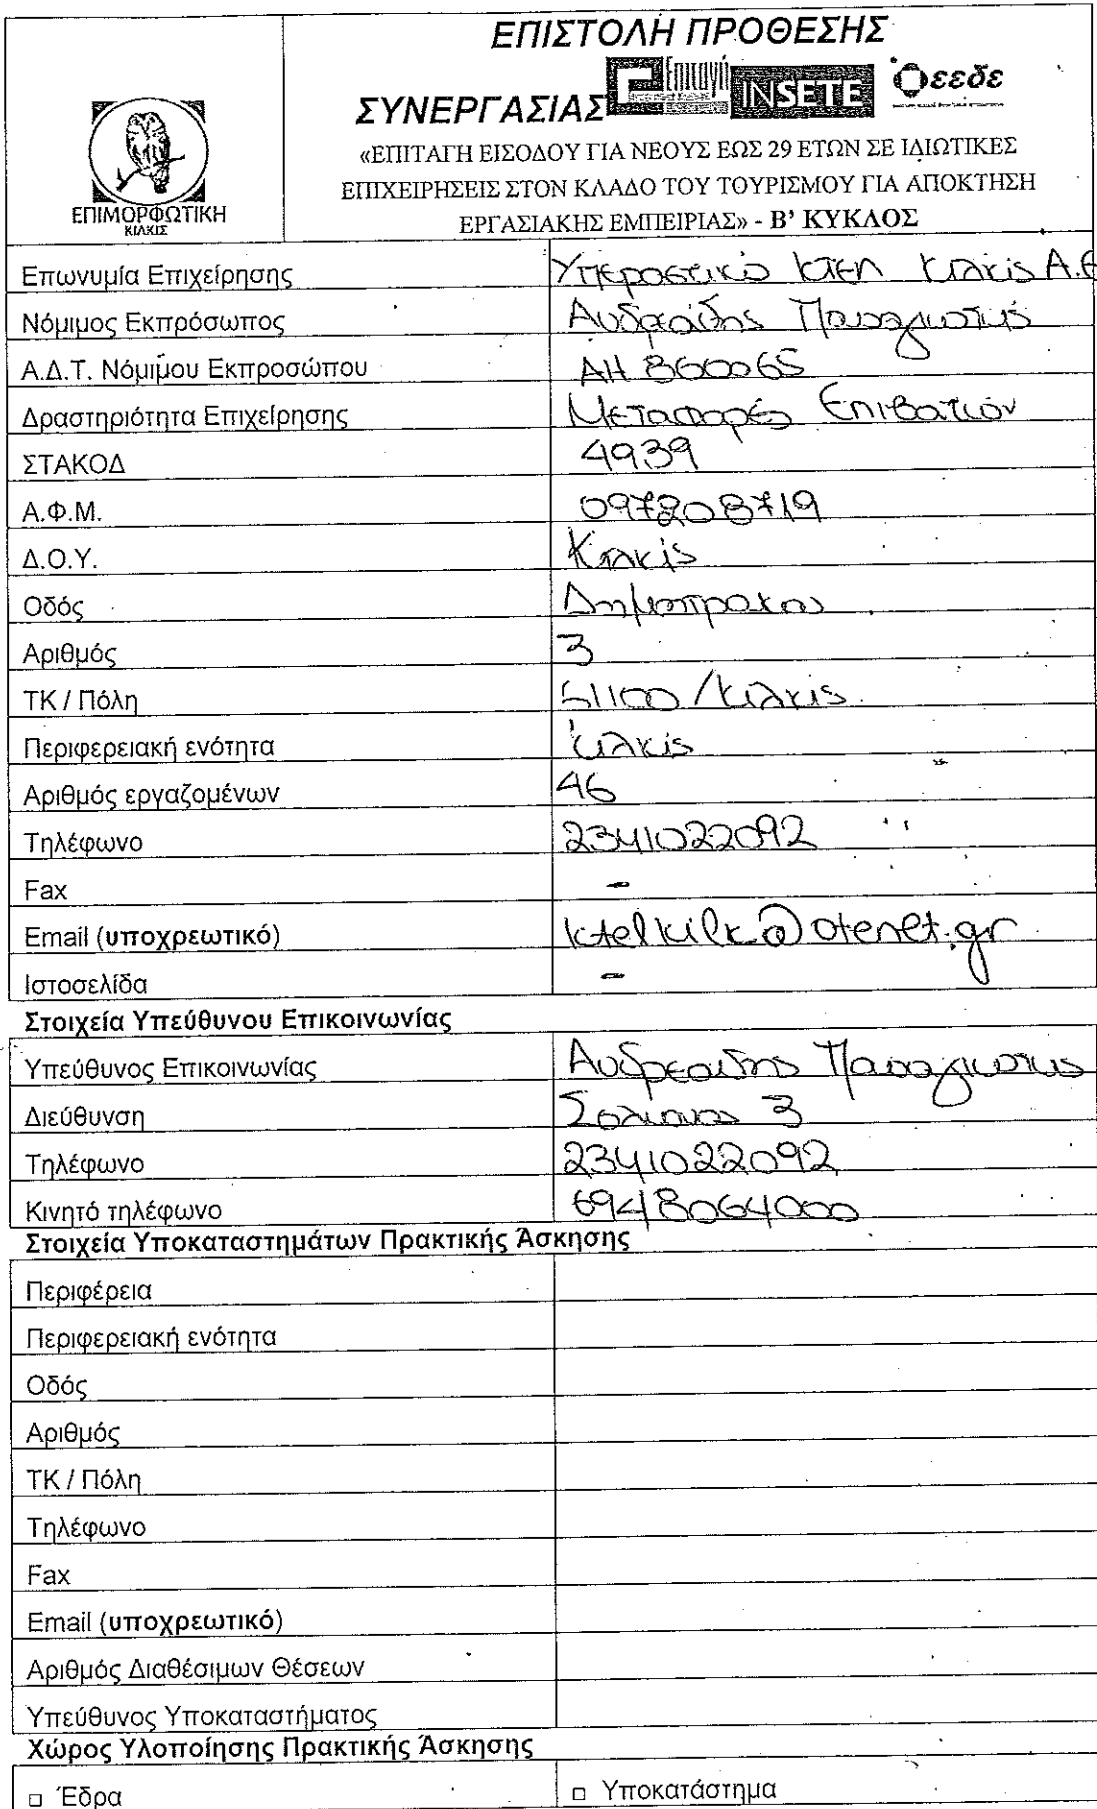 ΕΠΙΣΤΟΛΗ ΠΡΟΘΕΣΗΣ
ΣΥΝΕΡΓΑΣΙΑΣ Επιταγή INSETE εεδε
ΕΠΙΜΟΡΦΩΤΙΚΗ
ΚΙΛΚΙΣ
«ΕΠΙΤΑΓΗ ΕΙΣΟΔΟΥ ΓΙΑ ΝΕΟΥΣ ΕΩΣ 29 ΕΤΩΝ ΣΕ ΙΔΙΩΤΙΚΕΣ
ΕΠΙΧΕΙΡΗΣΕΙΣ ΣΤΟΝ ΚΛΑΔΟ ΤΟΥ ΤΟΥΡΙΣΜΟΥ ΓΙΑ ΑΠΟΚΤΗΣΗ
ΕΡΓΑΣΙΑΚΗΣ ΕΜΠΕΙΡΙΑΣ» - Β' ΚΥΚΛΟΣ
Επωνυμία Επιχείρησης Υπεραστικό Κτελ Κιλκίς Α.Ε
Νόμιμος Εκπρόσωπος Ανδρεάδης Παναγιώτης
Α.Δ.Τ. Νόμιμου Εκπροσώπου ΑΗ 860065
Δραστηριότητα Επιχείρησης Μεταφορές Επιβατών
ΣΤΑΚΟΔ 4939
Α.Φ.Μ. 097208719
Δ.Ο.Υ. Κιλκίς
Οδός
Αριθμός 3
ΤΚ / Πόλη 61100 / Κιλκίς
Περιφερειακή ενότητα Κιλκίς
Αριθμός εργαζομένων 46
Τηλέφωνο 2341022092
Fax -
Email (υποχρεωτικό) ktelkilk@otenet.gr
Ιστοσελίδα -
Στοιχεία Υπεύθυνου Επικοινωνίας
Υπεύθυνος Επικοινωνίας Ανδρεαδης Παναγιωτης
Διεύθυνση 3
Τηλέφωνο 2341022092
Κινητό τηλέφωνο 6948064000
Στοιχεία Υποκαταστημάτων Πρακτικής Άσκησης
Περιφέρεια
Περιφερειακή ενότητα
Οδός
Αριθμός
ΤΚ / Πόλη
Τηλέφωνο
Fax
Email (υποχρεωτικό)
Αριθμός Διαθέσιμων Θέσεων
Υπεύθυνος Υποκαταστήματος
Χώρος Υλοποίησης Πρακτικής Άσκησης
□ Έδρα □ Υποκατάστημα